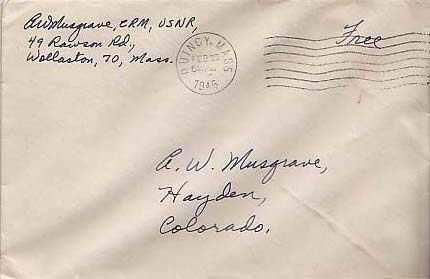 A.W. Musgrave, CRM, USNR,
49 Rawson Rd.,
Wollaston, 70, Mass.
QUINCY, MASS
FEB
1946
Free
A. W. Musgrave,
Hayden,
Colorado.